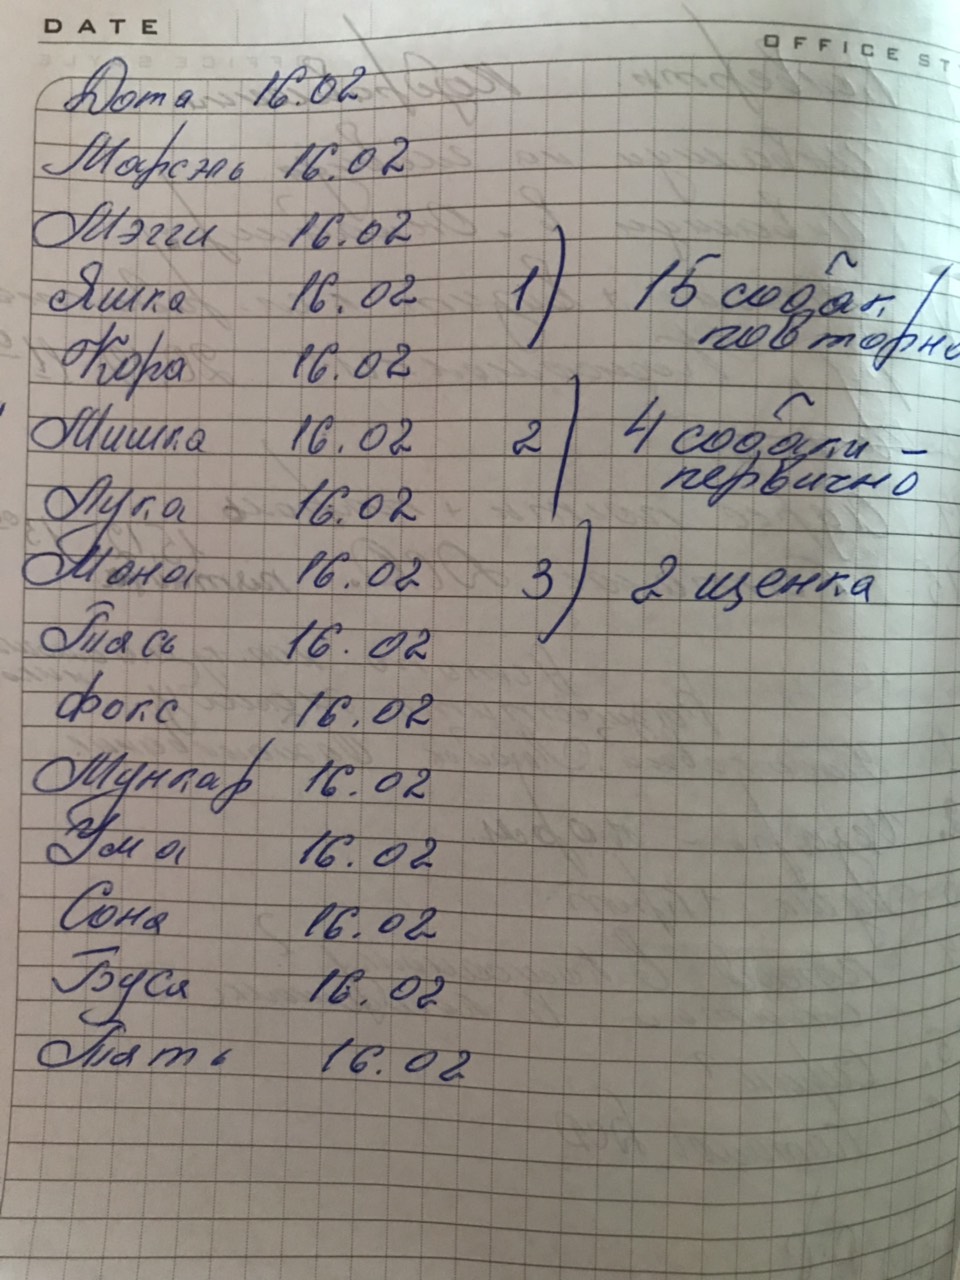 DATE
OFFICE ST
Дота 16.02
Марсэль 16.02
Мэгги 16.02
Яшка 16.02
1) 15 собак
повторно
Кора 16.02
Мишка 16.02
2) 4 собаки –
первично
Лука 16.02
Мона 16.02
3) 2 щенка
Тась 16.02
Фокс 16.02
Мункар 16.02
Ума 16.02
Сона 16.02
Буся 16.02
16.02